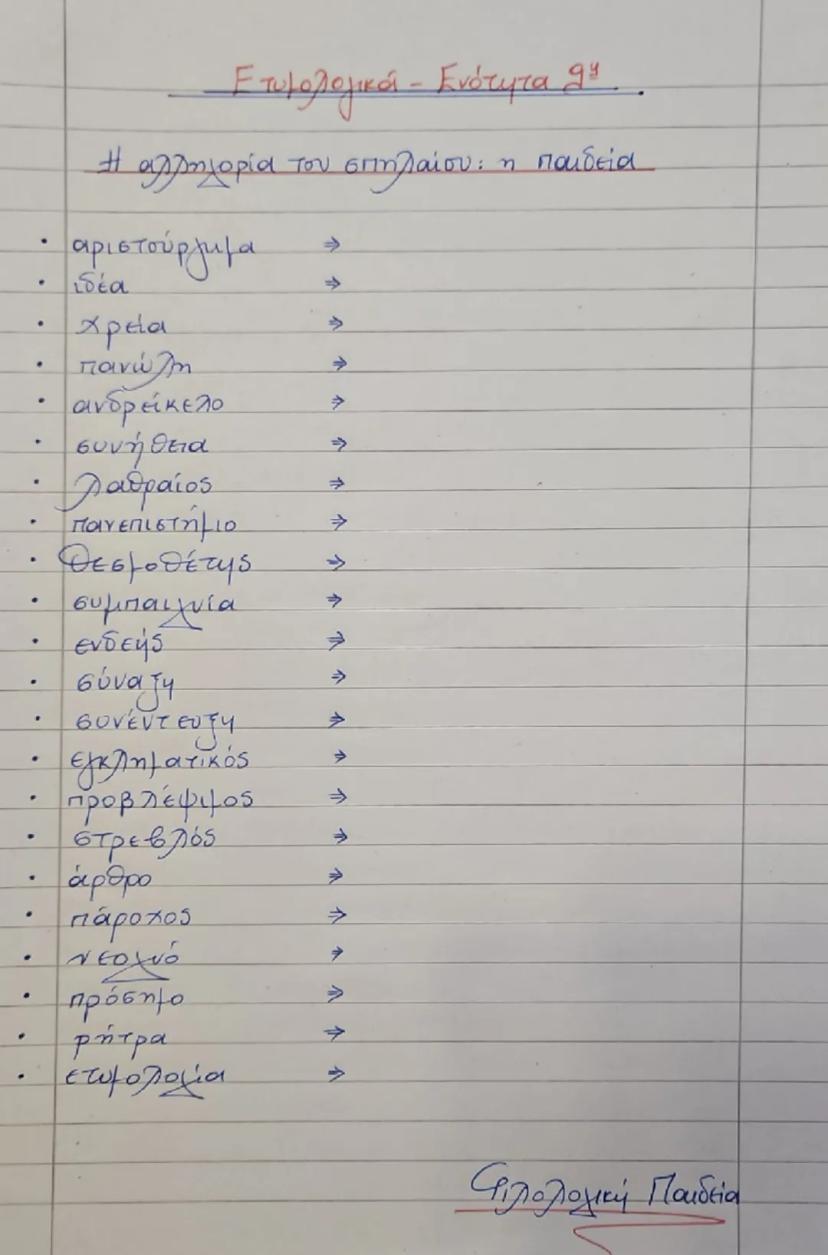 Ετυμολογικά - Ενότητα 9η.
Η αλληγορία του σπηλαίου: η παιδεία
• αριστούργημα ⇒
• ιδέα ⇒
• χρεία ⇒
• πανώλη ⇒
• ανδρείκελο ⇒
• συνήθεια ⇒
• λαθραίος ⇒
• πανεπιστήμιο ⇒
• θεσμοθέτης ⇒
• συμπαιγνία ⇒
• ενδεής ⇒
• σύναξη ⇒
• συνέντευξη ⇒
• εγκληματικός ⇒
• προβλέψιμος ⇒
• στρεβλός ⇒
• άρθρο ⇒
• πάροχος ⇒
• νεογνό ⇒
• πρόσημο ⇒
• ρήτρα ⇒
• ετυμολογία ⇒
Φιλολογική Παιδεία